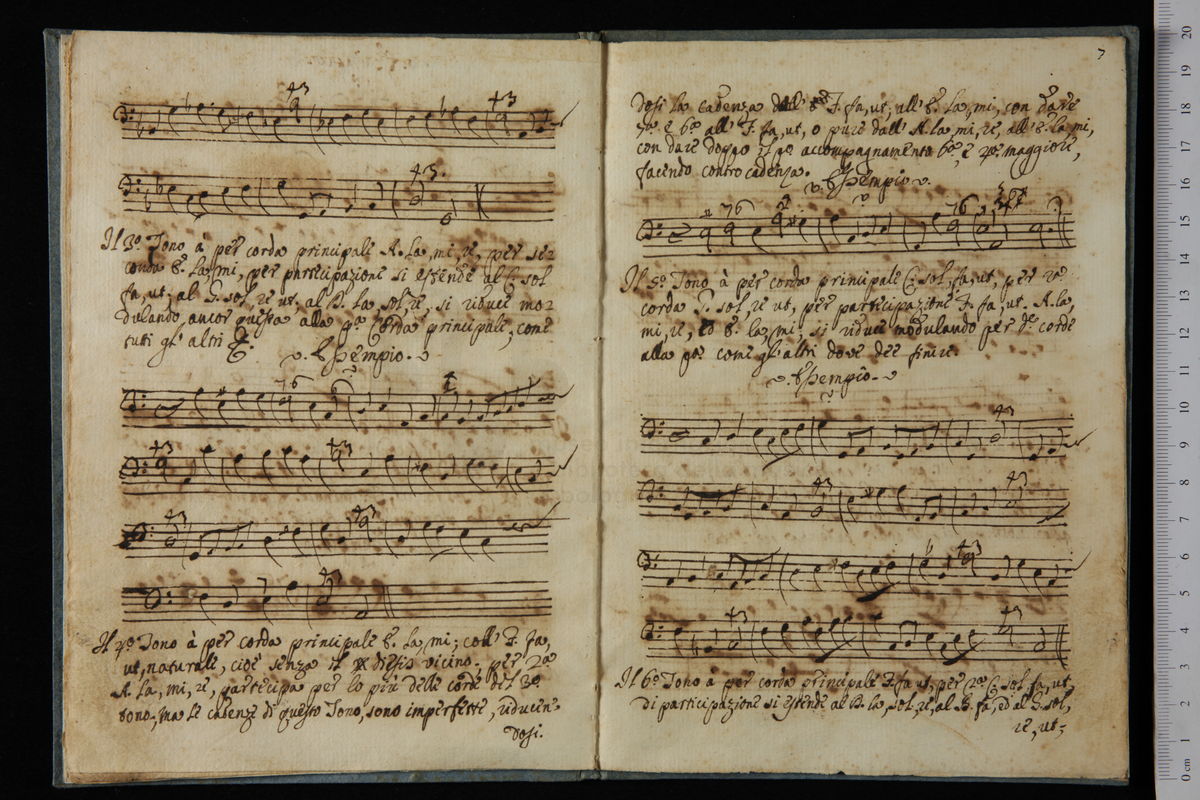 43
43
43.
Il 3º Tono à per corda principale A. la, mi, re, per se=
conda E. la, mi, per partecipazione si estende al C. sol
fa, ut; al G. sol, re ut. al D. la sol, re, si riduce mo=
dulando, ancor questa alla pª Corda principale, come
tutti gl' altri
Esempio.
76
43
43
43
43
43
Il 4º Tono à per corda principale E. la, mi; coll' F. fa,
ut, naturale, cioè senza il diesis vicino; per 2ª
A. la, mi, re, partecipa per lo più delle corde del 3º
tono, ma le cadenze di questo Tono, sono imperfette, riducen=
dosi.
7
dosi la cadenza dall' F. fa, ut, all' E. la, mi, con dare
7ª e 6ª all' F. fa, ut, o pure dall' A. la, mi, re, all' E. la, mi,
con dare doppo il pº accompagnamento 6ª, e maggiore,
facendo contro cadenza.
Esempio
76
76
Il 5º Tono à per corda principale C. sol, fa, ut, per 2ª
corda G. sol, re ut, per partecipazione F. fa, ut. A. la,
mi, re, E. la, mi, si riduce modulando per dº corde
alla pª come gl' altri dove dee finire.
Esempio
43
43
43
43
43
43
Il 6º Tono à per corda principale F. fa ut, per 2ª C. sol, fa, ut,
di partecipazione si estende al D. la, sol, re, al B. fa, ed al G. sol,
re, ut;
0 cm 1 2 3 4 5 6 7 8 9 10 11 12 13 14 15 16 17 18 19 20